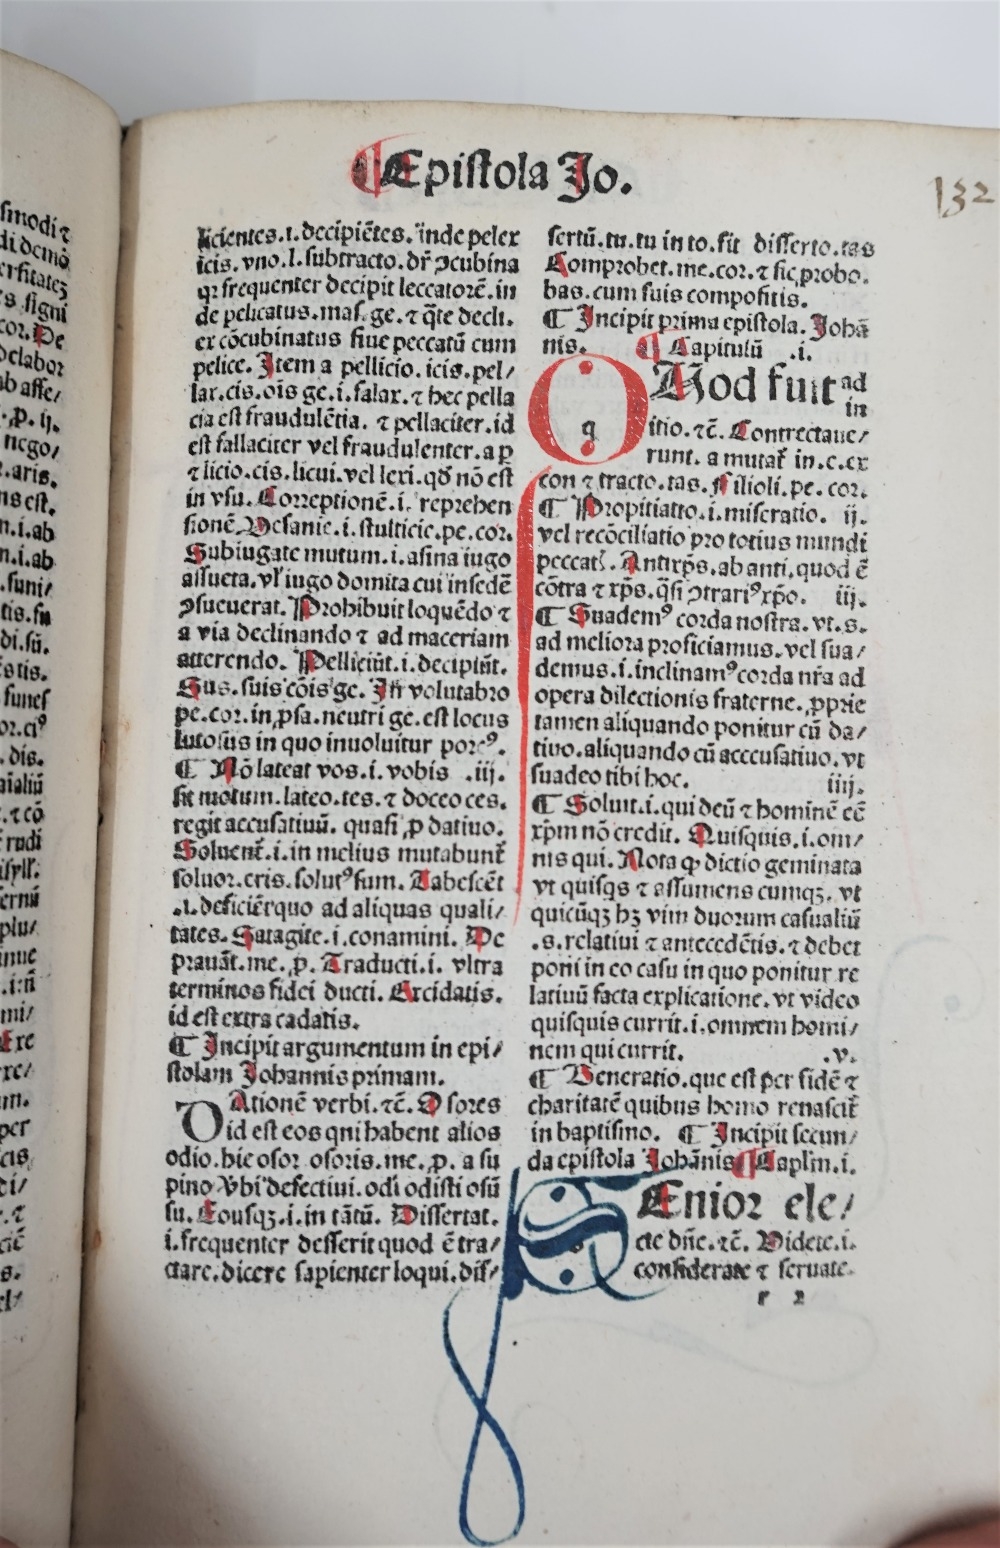 ¶Epistola Jo.
132
licientes.i.decipiētes.inde pelex
icis.vno.l.subtracto.dr̄ ɔcubina
qr frequenter decipit leccatorē.in
de pelicatus.mas.ge.⁊ q̄te decli.
ex cōcubinatus siue peccatū cum
pelice. Item a pellicio.icis.pel/
lax.cis.ois ge.i.falax.⁊ hec pella
cia est fraudulētia. ⁊ pellaciter.id
est fallaciter vel fraudulenter.a ꝑ
⁊ licio.cis.licui.vel lexi.qđ nō est
in vsu. Correptionē.i. reprehen
sionē. Vesanie.i.stulticie.pe.cor.
Subiugale mutum.i.asina iugo
assueta.vl' iugo domita cui insedē
ɔsueuerat. Prohibuit loquēdo ⁊
a via declinando ⁊ ad maceriam
atterendo. Pelliciūt.i.decipiūt.
Sus.suis cōis ge. In volutabro
pe.cor.in ꝓsa.neutri ge.est locus
lutosus in quo inuoluitur porcꝰ.
¶ Nō lateat vos.i.vobis .iij.
fit motum.lateo.tes.⁊ doceo ces.
regit accusatiuū. quasi ꝓ datiuo.
Soluent̄.i.in melius mutabunt̄
soluor.eris.solutꝰ sum. Tabescēt
.i.deficiēt quo ad aliquas quali/
tates. Satagite.i.conamini. De
prauāt.me.ꝓ. Traducti.i. vltra
terminos fidei ducti. Excidatis.
id est extra cadatis.
¶ Incipit argumentum in epi/
stolam Johannis primam.
RAtionē verbi.⁊c̄. Osores
id est eos qui habent alios
odio.hic osor osoris.me.ꝓ. a su
pino vbi defectiui.odi odisti osū
su. Eousqꝫ.i.in tātū. Dissertat.
i.frequenter desserit quod ē tra/
ctare.dicere sapienter loqui.dis/
sertū.tu.tu in to.fit disserto.tas
Comprobet.me.cor.⁊ sic probo.
bas.cum suis compositis.
¶ Incipit prima epistola. Johā
nis. ¶ Capitulū .i.
QUod fuit ad
in
itio.⁊c̄. Contrectaue/
runt. a mutat̄ in.e.ex
con ⁊ tracto.tas. Filioli.pe.cor.
¶ Propitiatio.i.miseratio. ij.
vel recōciliatio pro totius mundi
peccatꝭ. Antixp̄s.ab anti.quod ē
cōtra ⁊ xp̄s.q̄si ɔtrariꝰ xp̄o. iij.
¶ Suademꝰ corda nostra.vt.s.
ad meliora proficiamus.vel sua/
demus.i.inclinamꝰ corda nr̄a ad
opera dilectionis fraterne.ꝓprie
tamen aliquando ponitur cū da/
tiuo.aliquando cū acccusatiuo.vt
suadeo tibi hoc. iiij.
¶ Soluit.i.qui deū ⁊ hominē eē
xp̄m nō credit. Quisquis.i.om/
nis qui. Nota ꝙ dictio geminata
vt quisqs ⁊ assumens cumqꝫ. vt
quicūqꝫ hꝫ vim duorum casualiū
.s.relatiui ⁊ antecedētis.⁊ debet
poni in eo casu in quo ponitur re
latiuū facta explicatione.vt video
quisquis currit.i.omnem homi/
nem qui currit. .v.
¶ Veneratio.que est per fidē ⁊
charitatē quibus homo renascit̄
in baptismo. ¶ Incipit secun/
da epistola Johānis ¶ Caplm.i.
SEnior ele/
cte dn̄e.⁊c̄. Videte.i.
considerate ⁊ seruate.
r 2